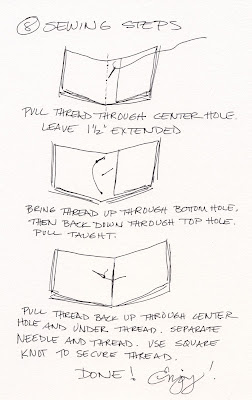 8 SEWING STEPS
PULL THREAD THROUGH CENTER HOLE.
LEAVE 1½" EXTENDED
BRING THREAD UP THROUGH BOTTOM HOLE,
THEN BACK DOWN THROUGH TOP HOLE.
PULL TAUGHT.
PULL THREAD BACK UP THROUGH CENTER
HOLE AND UNDER THREAD. SEPARATE
NEEDLE AND THREAD. USE SQUARE
KNOT TO SECURE THREAD.
DONE! Enjoy!